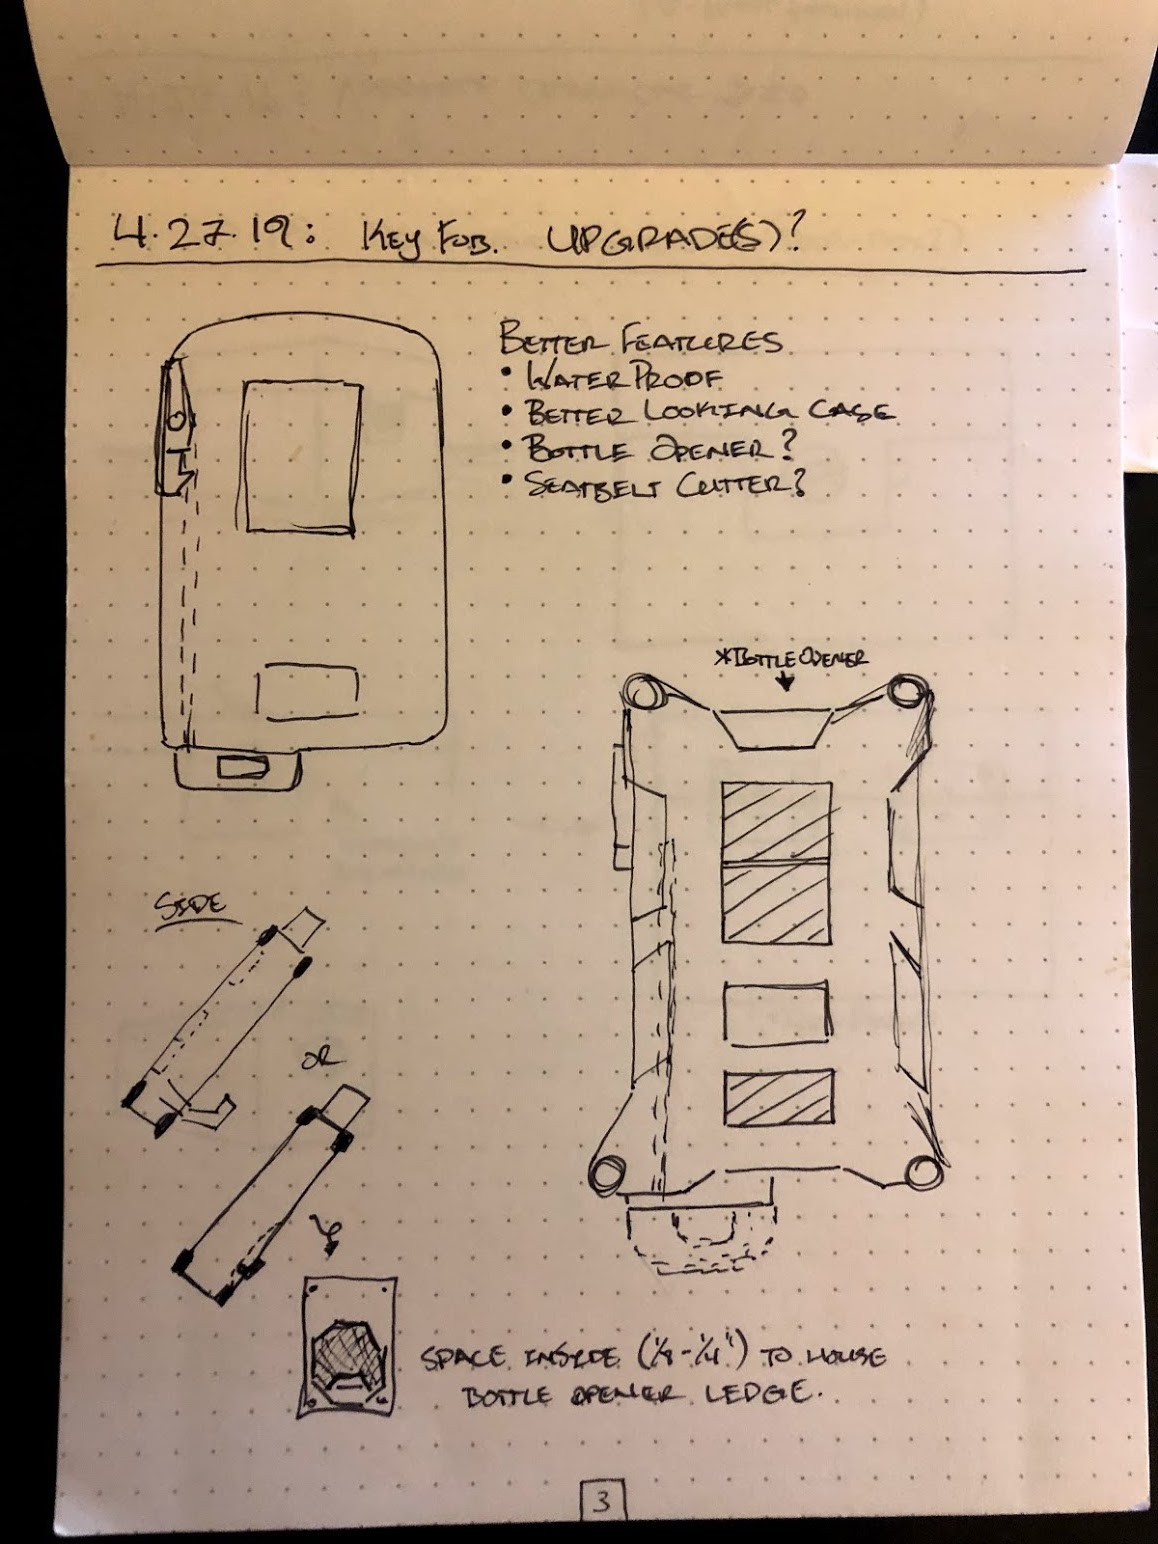 4.27.19: KEY FOB. UPGRADE(S)?
BETTER FEATURES
• WATERPROOF
• BETTER LOOKING CASE
• BOTTLE OPENER?
• SEATBELT CUTTER?
*BOTTLE OPENER
SIDE
OR
SPACE INSIDE (1/8-1/4") TO HOUSE
BOTTLE OPENER LEDGE.
3